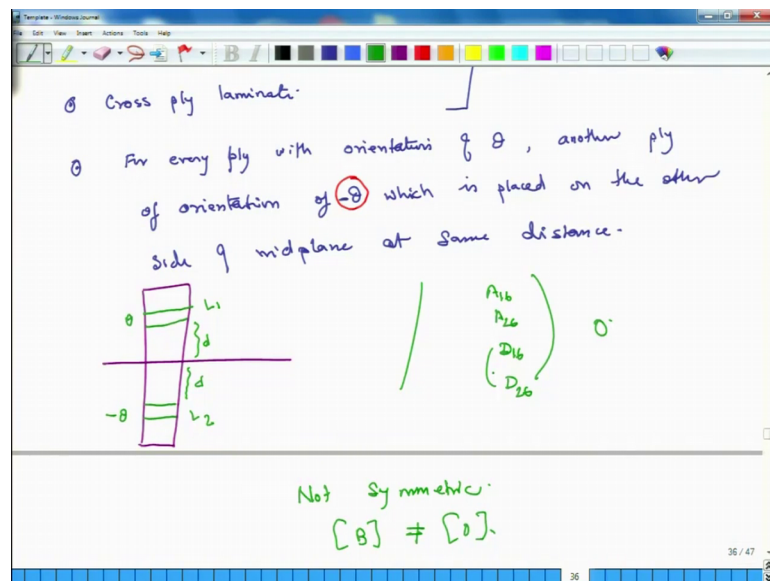 Template - Windows Journal
File Edit View Insert Actions Tools Help
Cross ply laminate.
For every ply with orientation of θ, another ply
of orientation of -θ which is placed on the other
side of midplane at same distance.
θ L1
d
d
-θ L2
A16
A26
D16
D26
0
Not symmetric.
[B] ≠ [0].
36 / 47
36